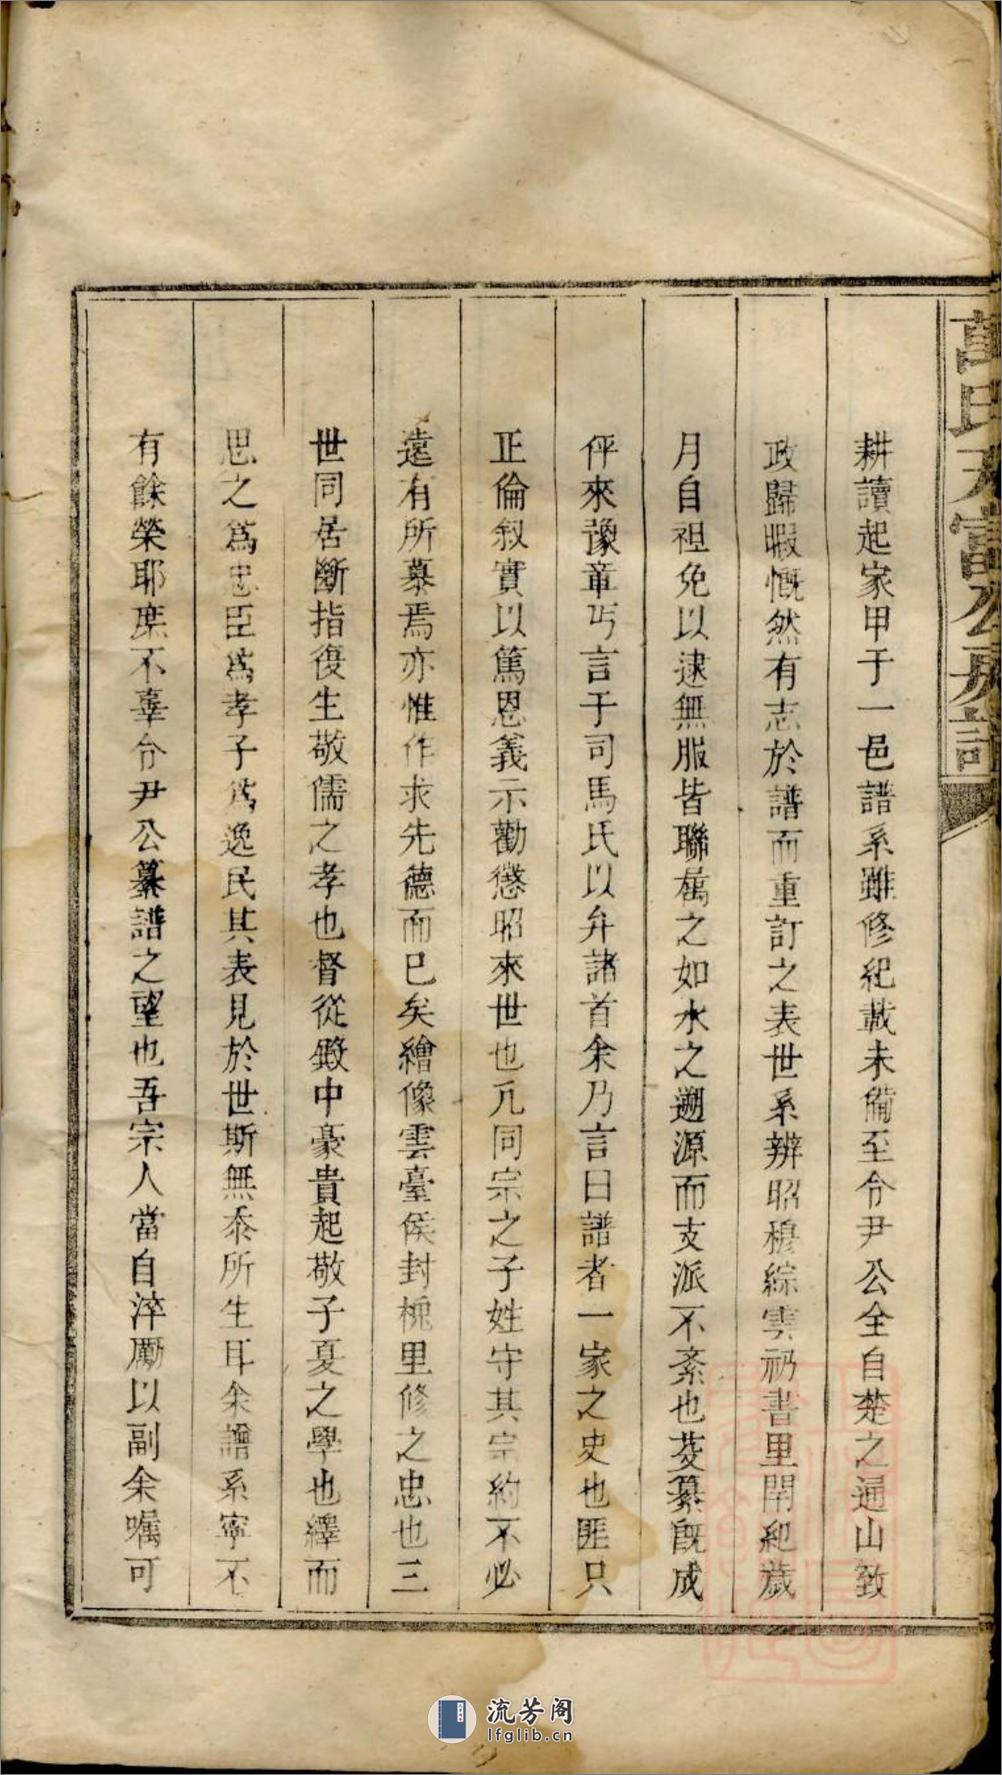 萬氏天富公房譜
耕讀起家甲于一邑譜系雖修紀載未備至令尹公全自楚之通山致
政歸暇慨然有志於譜而重訂之表世系辨昭穆綜雲礽書里閈紀歲
月自袒免以逮無服皆聯萬之如水之遡源而支派不紊也茲纂旣成
伻來豫章丐言于司馬氏以弁諸首余乃言曰譜者一家之史也匪只
正倫叙實以篤恩義示勸懲昭來世也凡同宗之子姓守其宗約不必
遠有所慕焉亦惟作求先德而已矣繪像雲臺侯封槐里修之忠也三
世同居斷指復生敬儒之孝也督從緞中豪貴起敬子夏之學也繹而
思之爲忠臣爲孝子爲逸民其表見於世斯無忝所生耳余譜系寜不
有餘榮耶庶不辜令尹公纂譜之望也吾宗人當自淬勵以副余嘱可
流芳阁
lfglib.cn